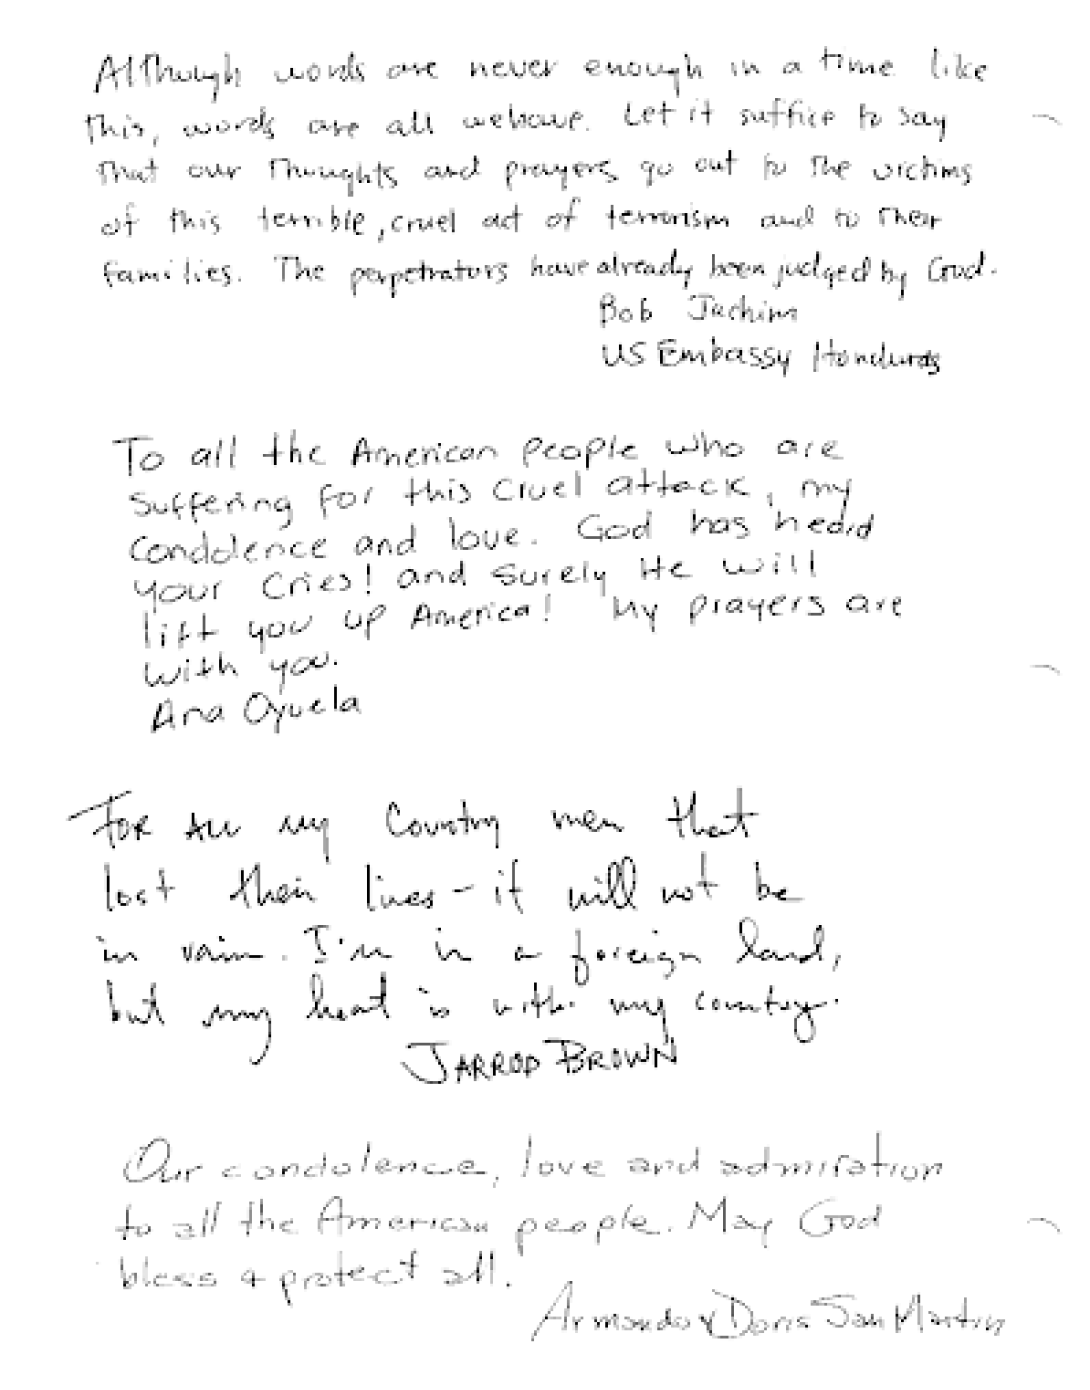 Although words are never enough in a time like
this, words are all we have. Let it suffice to say
that our thoughts and prayers go out to the victims
of this terrible, cruel act of terrorism and to their
families. The perpetrators have already been judged by God.
Bob Jachim
US Embassy Honduras
To all the American people who are
suffering for this cruel attack, my
condolence and love. God has heard
your cries! and surely He will
lift you up America! My prayers are
with you.
Ana Oyuela
FOR ALL my Country men that
lost their lives - it will not be
in vain. I'm in a foreign land,
but my heart is with my country.
JARROD BROWN
Our condolence, love and admiration
to all the American people. May God
bless & protect all.
Armando y Doris San Martin